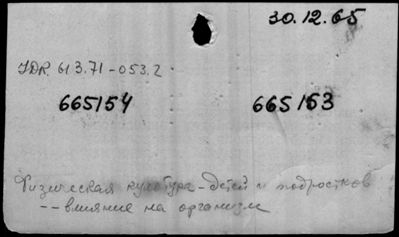 30.12.65
УДК 613.71-053.2
665/54 665/53
Физическая культура - детей и подростков
-- влияние на организм